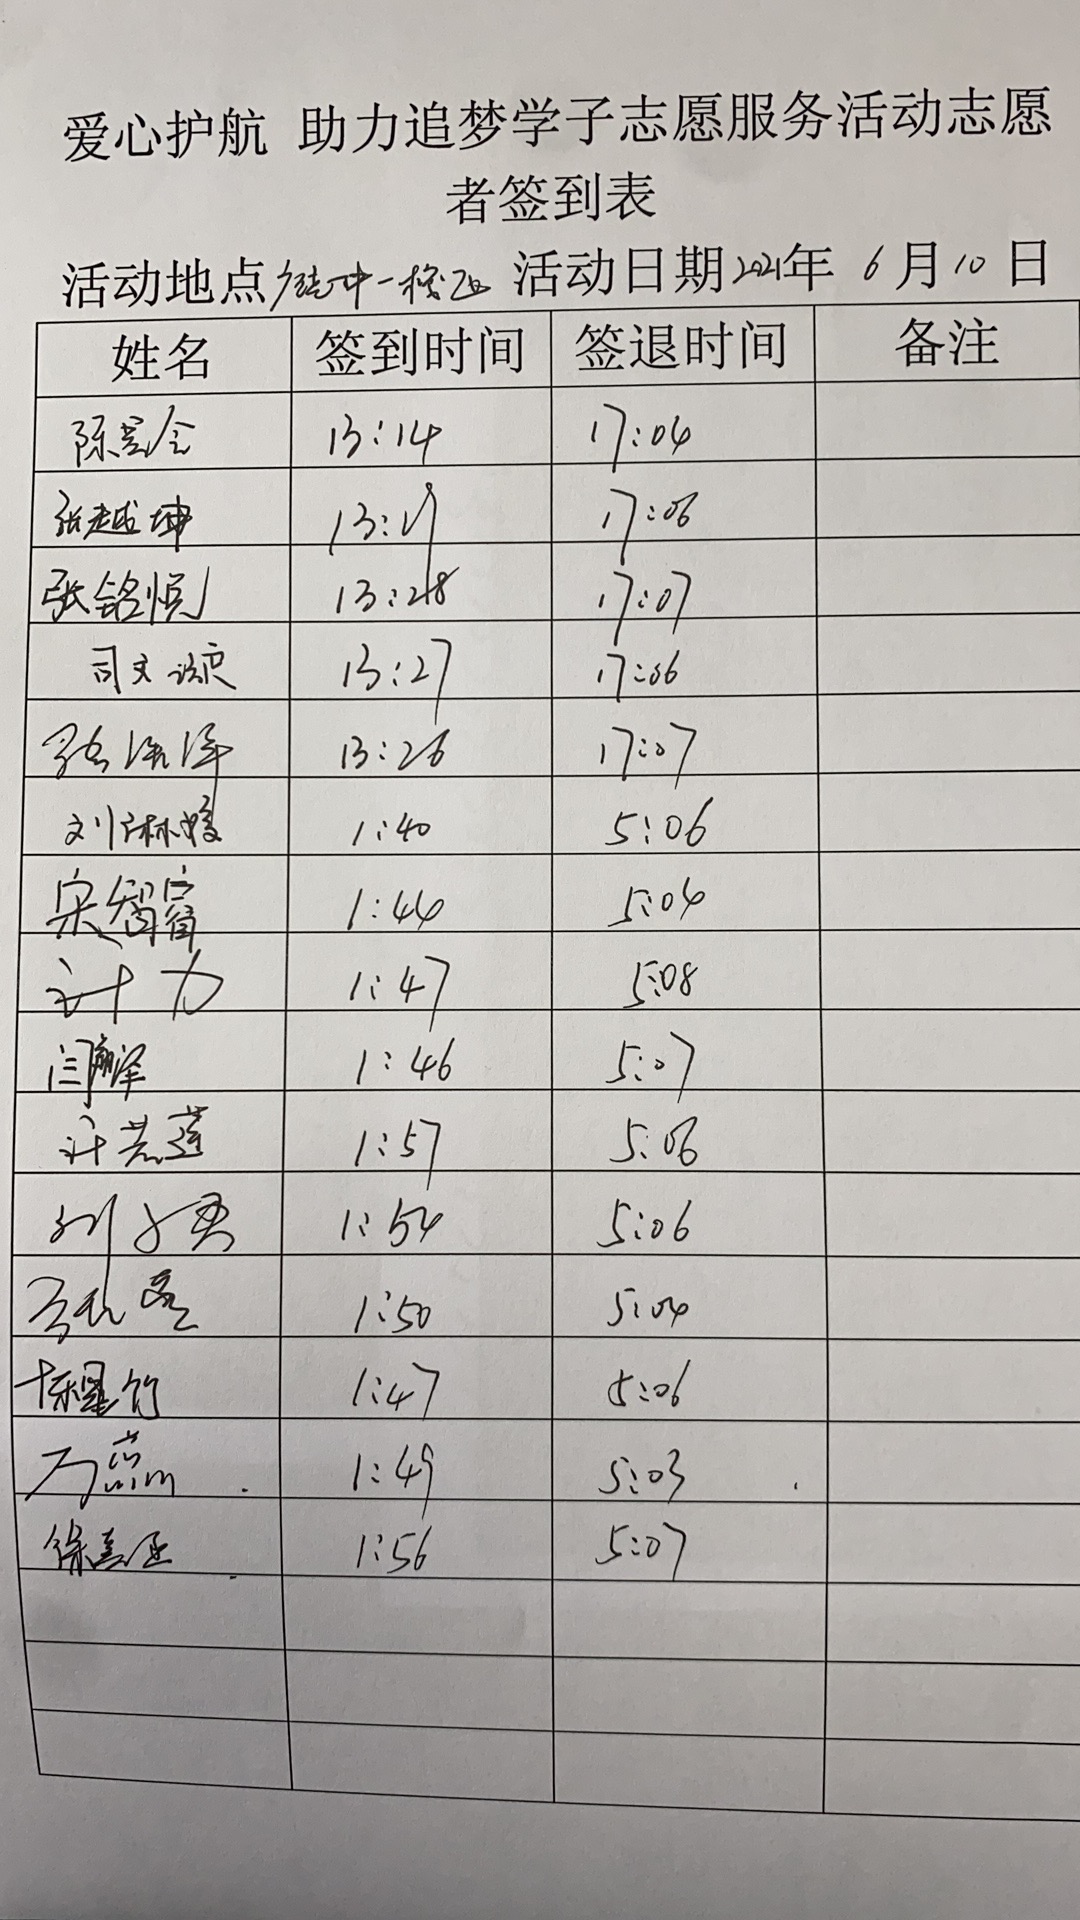 爱心护航 助力追梦学子志愿服务活动志愿
者签到表
活动地点 中一校区 活动日期2021年 6月10日
姓名 签到时间 签退时间 备注
陈 13:14 17:04
张越坤 13:19 17:06
张铭悦 13:28 17:07
司文 13:27 17:06
张泽 13:26 17:07
刘琳 1:40 5:06
宋智 1:44 5:04
计力 1:47 5:08
闫泽 1:46 5:07
许莲 1:57 5:06
刘 1:54 5:06
1:50 5:04
陈星竹 1:47 5:06
万蕊 1:49 5:03
徐嘉 1:56 5:07